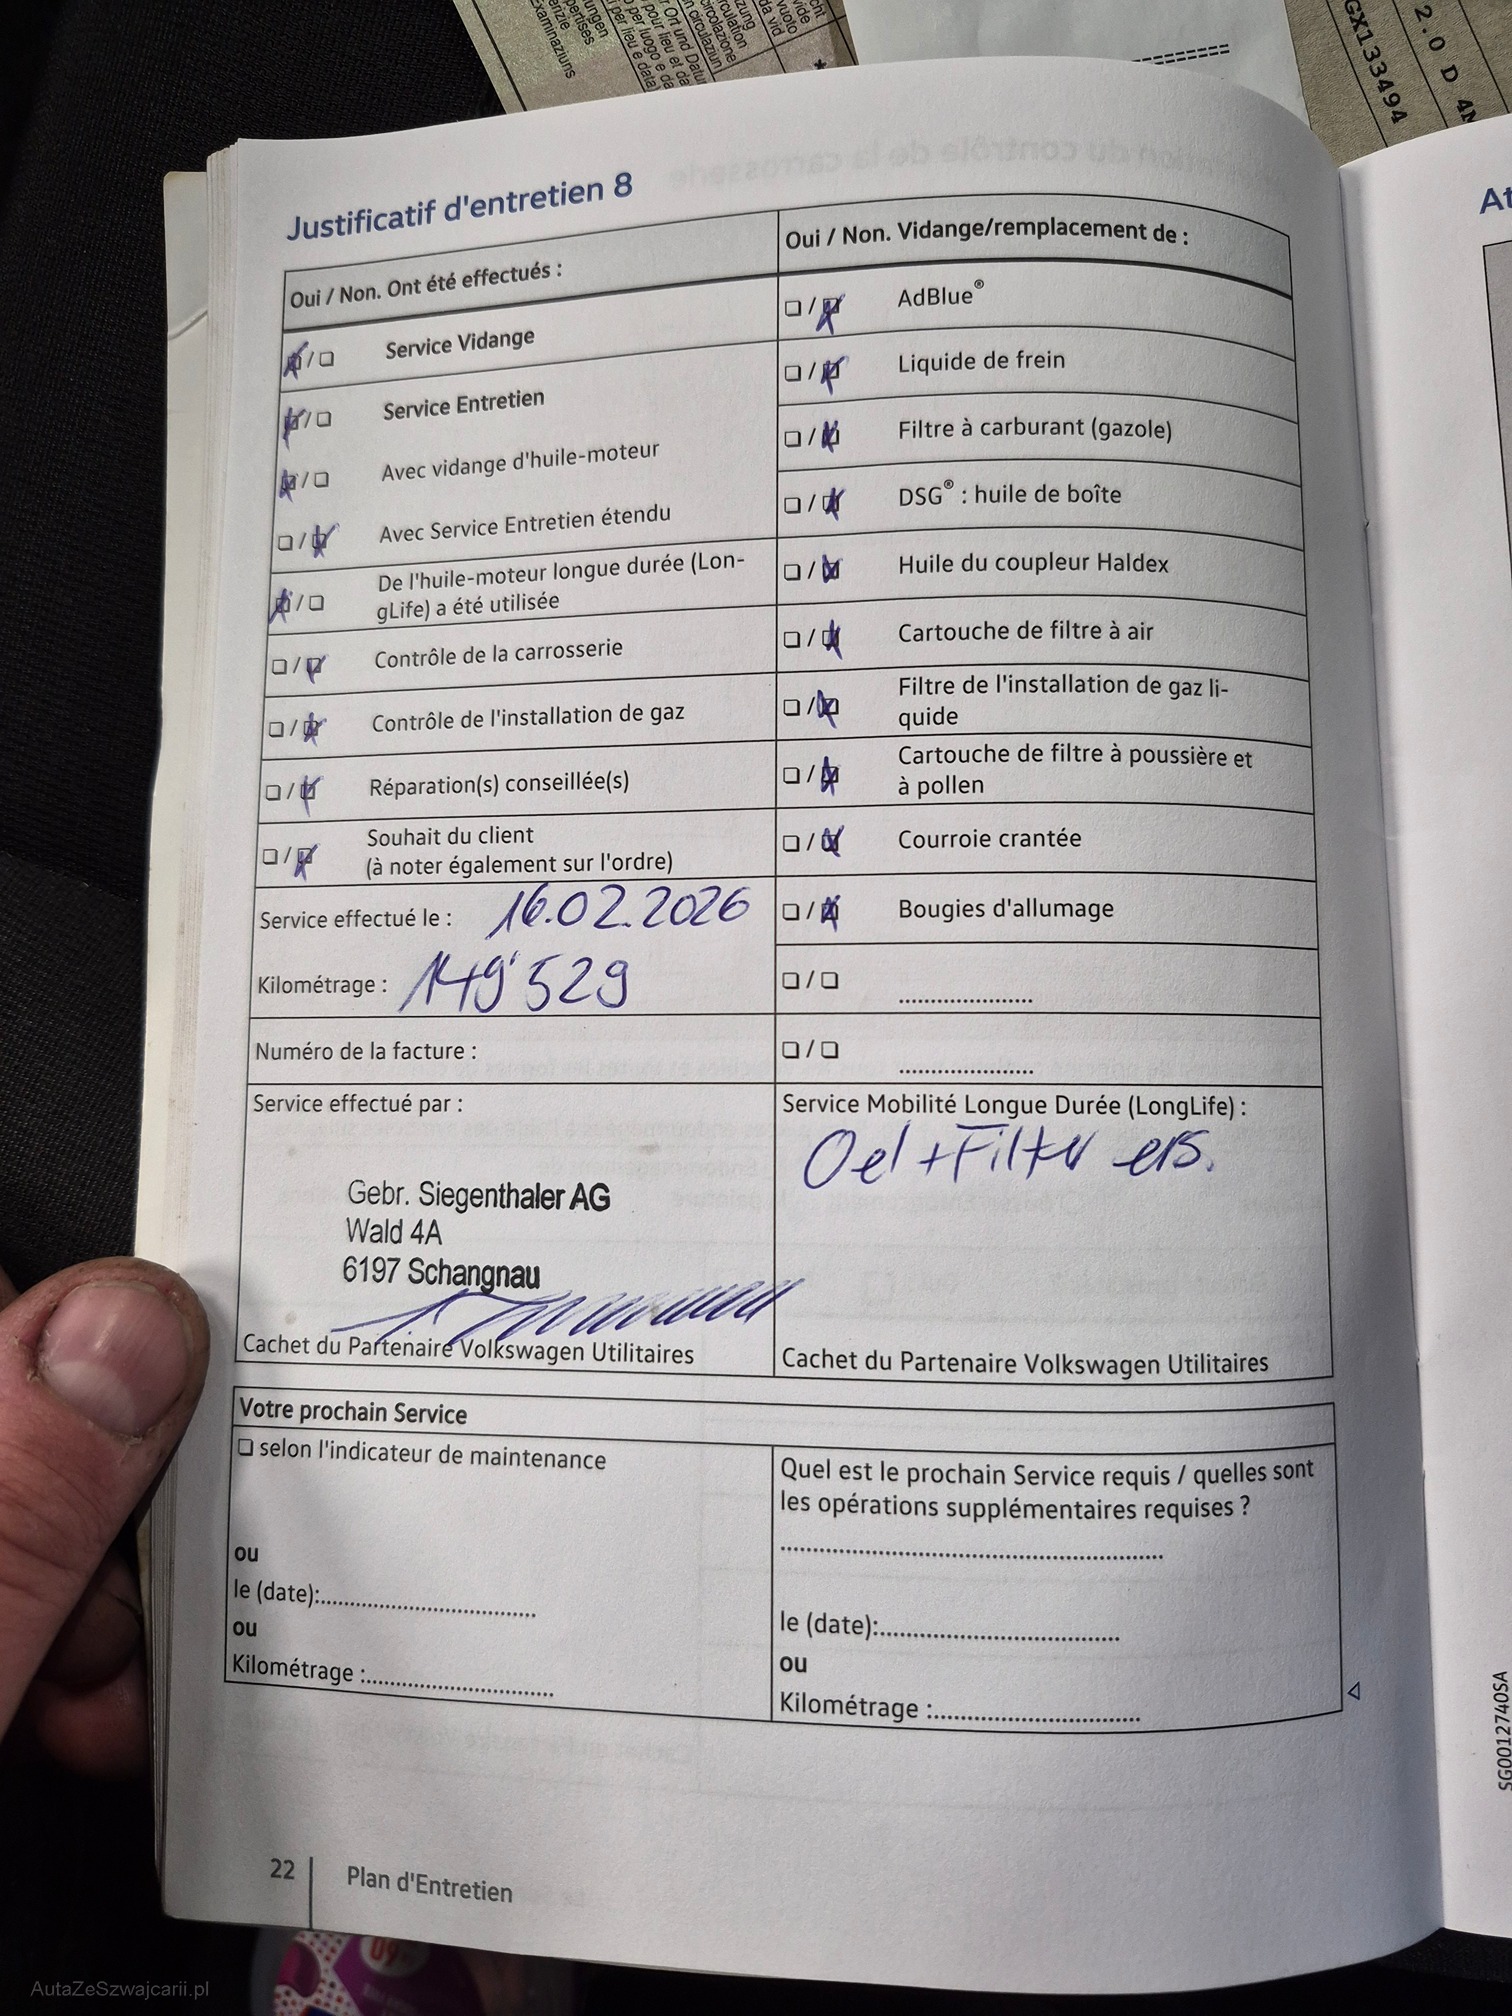 GX133494
2.0 D 4M
Justificatif d'entretien 8
Oui / Non. Ont été effectués :
Service Vidange
Service Entretien
Avec vidange d'huile-moteur
Avec Service Entretien étendu
De l'huile-moteur longue durée (Lon-
gLife) a été utilisée
Contrôle de la carrosserie
Contrôle de l'installation de gaz
Réparation(s) conseillée(s)
Souhait du client
(à noter également sur l'ordre)
Service effectué le : 16.02.2026
Kilométrage : 149'529
Numéro de la facture :
Service effectué par :
Gebr. Siegenthaler AG
Wald 4A
6197 Schangnau
Cachet du Partenaire Volkswagen Utilitaires
Oui / Non. Vidange/remplacement de :
AdBlue®
Liquide de frein
Filtre à carburant (gazole)
DSG® : huile de boîte
Huile du coupleur Haldex
Cartouche de filtre à air
Filtre de l'installation de gaz li-
quide
Cartouche de filtre à poussière et
à pollen
Courroie crantée
Bougies d'allumage
Service Mobilité Longue Durée (LongLife) :
Oel + Filter ers.
Cachet du Partenaire Volkswagen Utilitaires
Votre prochain Service
selon l'indicateur de maintenance
ou
le (date):
ou
Kilométrage :
Quel est le prochain Service requis / quelles sont
les opérations supplémentaires requises ?
le (date):
ou
Kilométrage :
22
Plan d'Entretien
SG0012740SA
AutaZeSzwajcarii.pl